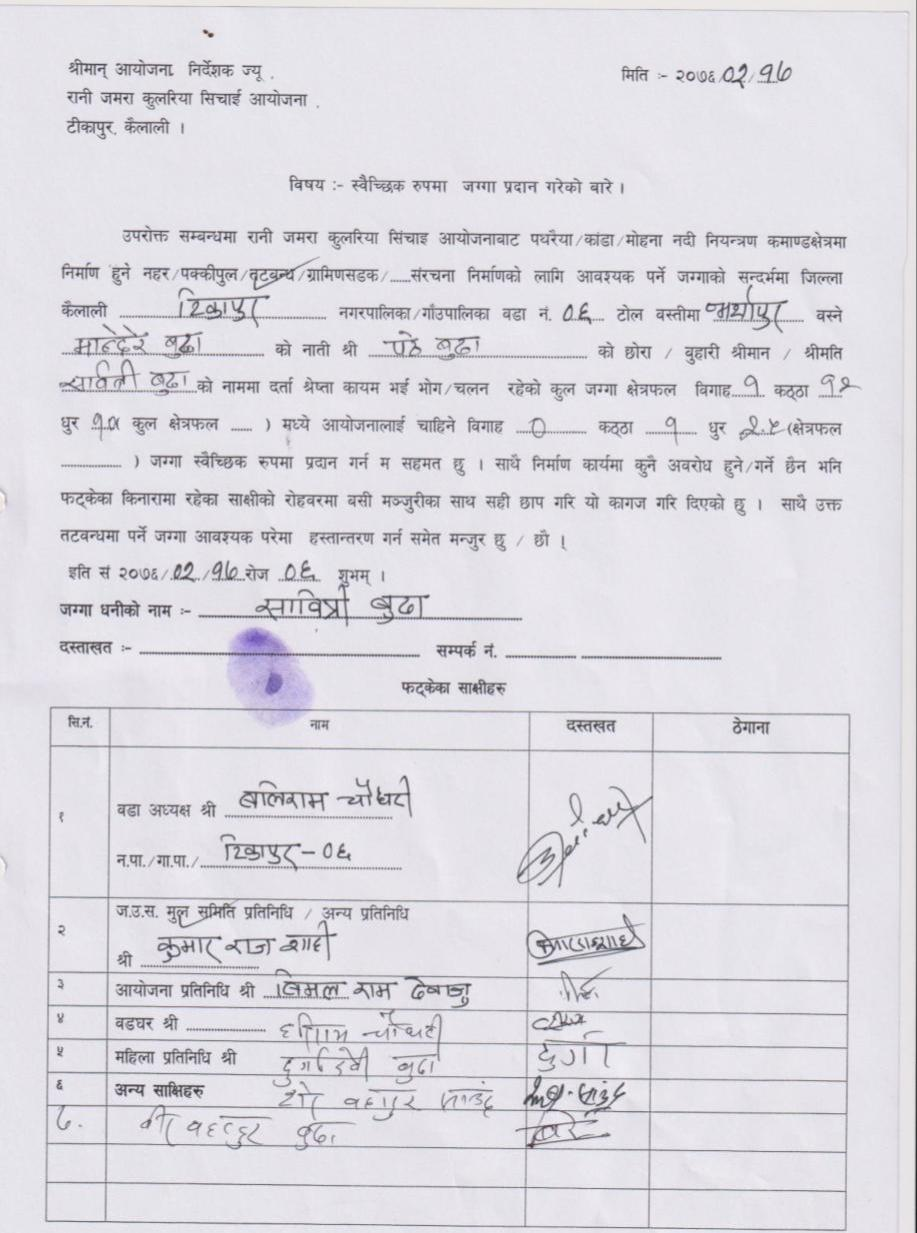 श्रीमान् आयोजना निर्देशक ज्यू , मिति :- २०७६/02/१७
रानी जमरा कुलरिया सिचाई आयोजना ,
टीकापुर, कैलाली ।
विषय :- स्वैच्छिक रुपमा जग्गा प्रदान गरेको बारे ।
उपरोक्त सम्बन्धमा रानी जमरा कुलरिया सिंचाइ आयोजनाबाट पथरैया/कांडा/मोहना नदी नियन्त्रण कमाण्डक्षेत्रमा
निर्माण हुने नहर/पक्कीपुल/तटबन्ध/ग्रामिणसडक/.....संरचना निर्माणको लागि आवश्यक पर्ने जग्गाको सन्दर्भमा जिल्ला
कैलाली टिकापुर नगरपालिका/गाँउपालिका वडा नं. ०६ टोल वस्तीमा वस्ने
बुढा को नाती श्री बुढा को छोरा / बुहारी श्रीमान / श्रीमति
सावित्री बुढा को नाममा दर्ता श्रेष्ता कायम भई भोग/चलन रहेको कुल जग्गा क्षेत्रफल विगाह १ कठ्ठा १२
धुर कुल क्षेत्रफल ...... ) मध्ये आयोजनालाई चाहिने विगाह 0 कठ्ठा १ धुर २.५ (क्षेत्रफल
.................. ) जग्गा स्वैच्छिक रुपमा प्रदान गर्न म सहमत छु । साथै निर्माण कार्यमा कुनै अवरोध हुने/गर्ने छैन भनि
फट्केका किनारामा रहेका साक्षीको रोहवरमा बसी मञ्जुरीका साथ सही छाप गरि यो कागज गरि दिएको छु । साथै उक्त
तटवन्धमा पर्ने जग्गा आवश्यक परेमा हस्तान्तरण गर्न समेत मन्जुर छु / छौ ।
इति सं २०७६/02/१७ रोज ०६ शुभम् ।
जग्गा धनीको नाम :- सावित्री बुढा
दस्ताखत :- सम्पर्क नं.
फट्केका साक्षीहरु
सि.नं. नाम दस्तखत ठेगाना
१ वडा अध्यक्ष श्री बलिराम चौधरी
न.पा./गा.पा./ टिकापुर - ०६
२ ज.उ.स. मुल समिति प्रतिनिधि / अन्य प्रतिनिधि
श्री कुमार राज शाही
३ आयोजना प्रतिनिधि श्री बिमल राम देवाजु
४ वडघर श्री चौधरी
५ महिला प्रतिनिधि श्री दुर्गादेवी बुढा दुर्गा
६ अन्य साक्षिहरु शेर बहादुर
७. वीर बहादुर बुढा